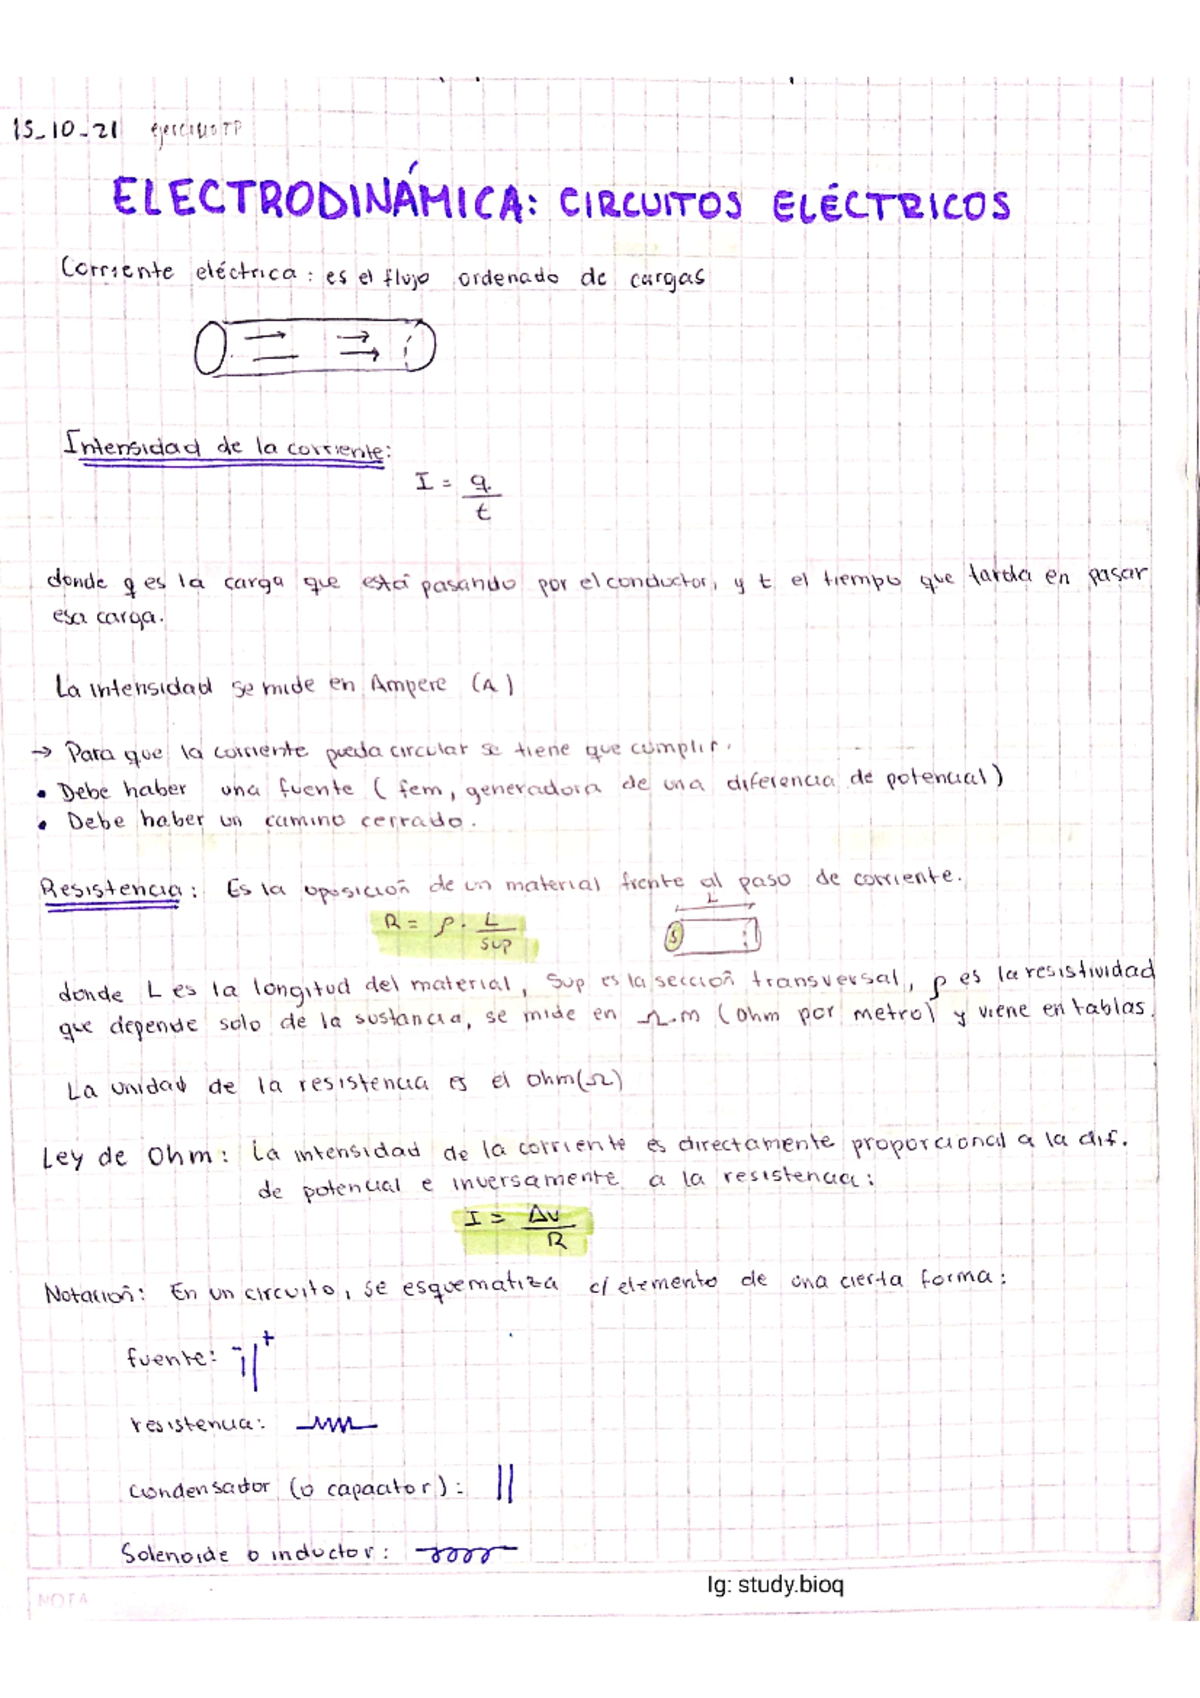 15-10-21 ejercicios TP
ELECTRODINÁMICA: CIRCUITOS ELÉCTRICOS
Corriente eléctrica: es el flujo ordenado de cargas
Intensidad de la corriente:
I = q
t
donde q es la carga que está pasando por el conductor, y t el tiempo que tarda en pasar
esa carga.
La intensidad se mide en Ampere (A)
→ Para que la corriente pueda circular se tiene que cumplir.
• Debe haber una fuente (fem, generadora de una diferencia de potencial)
• Debe haber un camino cerrado.
Resistencia: Es la oposición de un material frente al paso de corriente.
L
R = ρ. L
Sup
S
donde L es la longitud del material, Sup es la sección transversal, ρ es la resistividad
que depende solo de la sustancia, se mide en Ω.m (ohm por metro) y viene en tablas.
La unidad de la resistencia es el ohm(Ω)
Ley de Ohm: La intensidad de la corriente es directamente proporcional a la dif.
de potencial e inversamente a la resistencia:
I = ΔV
R
Notación: En un circuito, se esquematiza c/ elemento de una cierta forma:
fuente: - +
resistencia:
condensador (o capacitor):
Solenoide o inductor:
NOTA
Ig: study.bioq